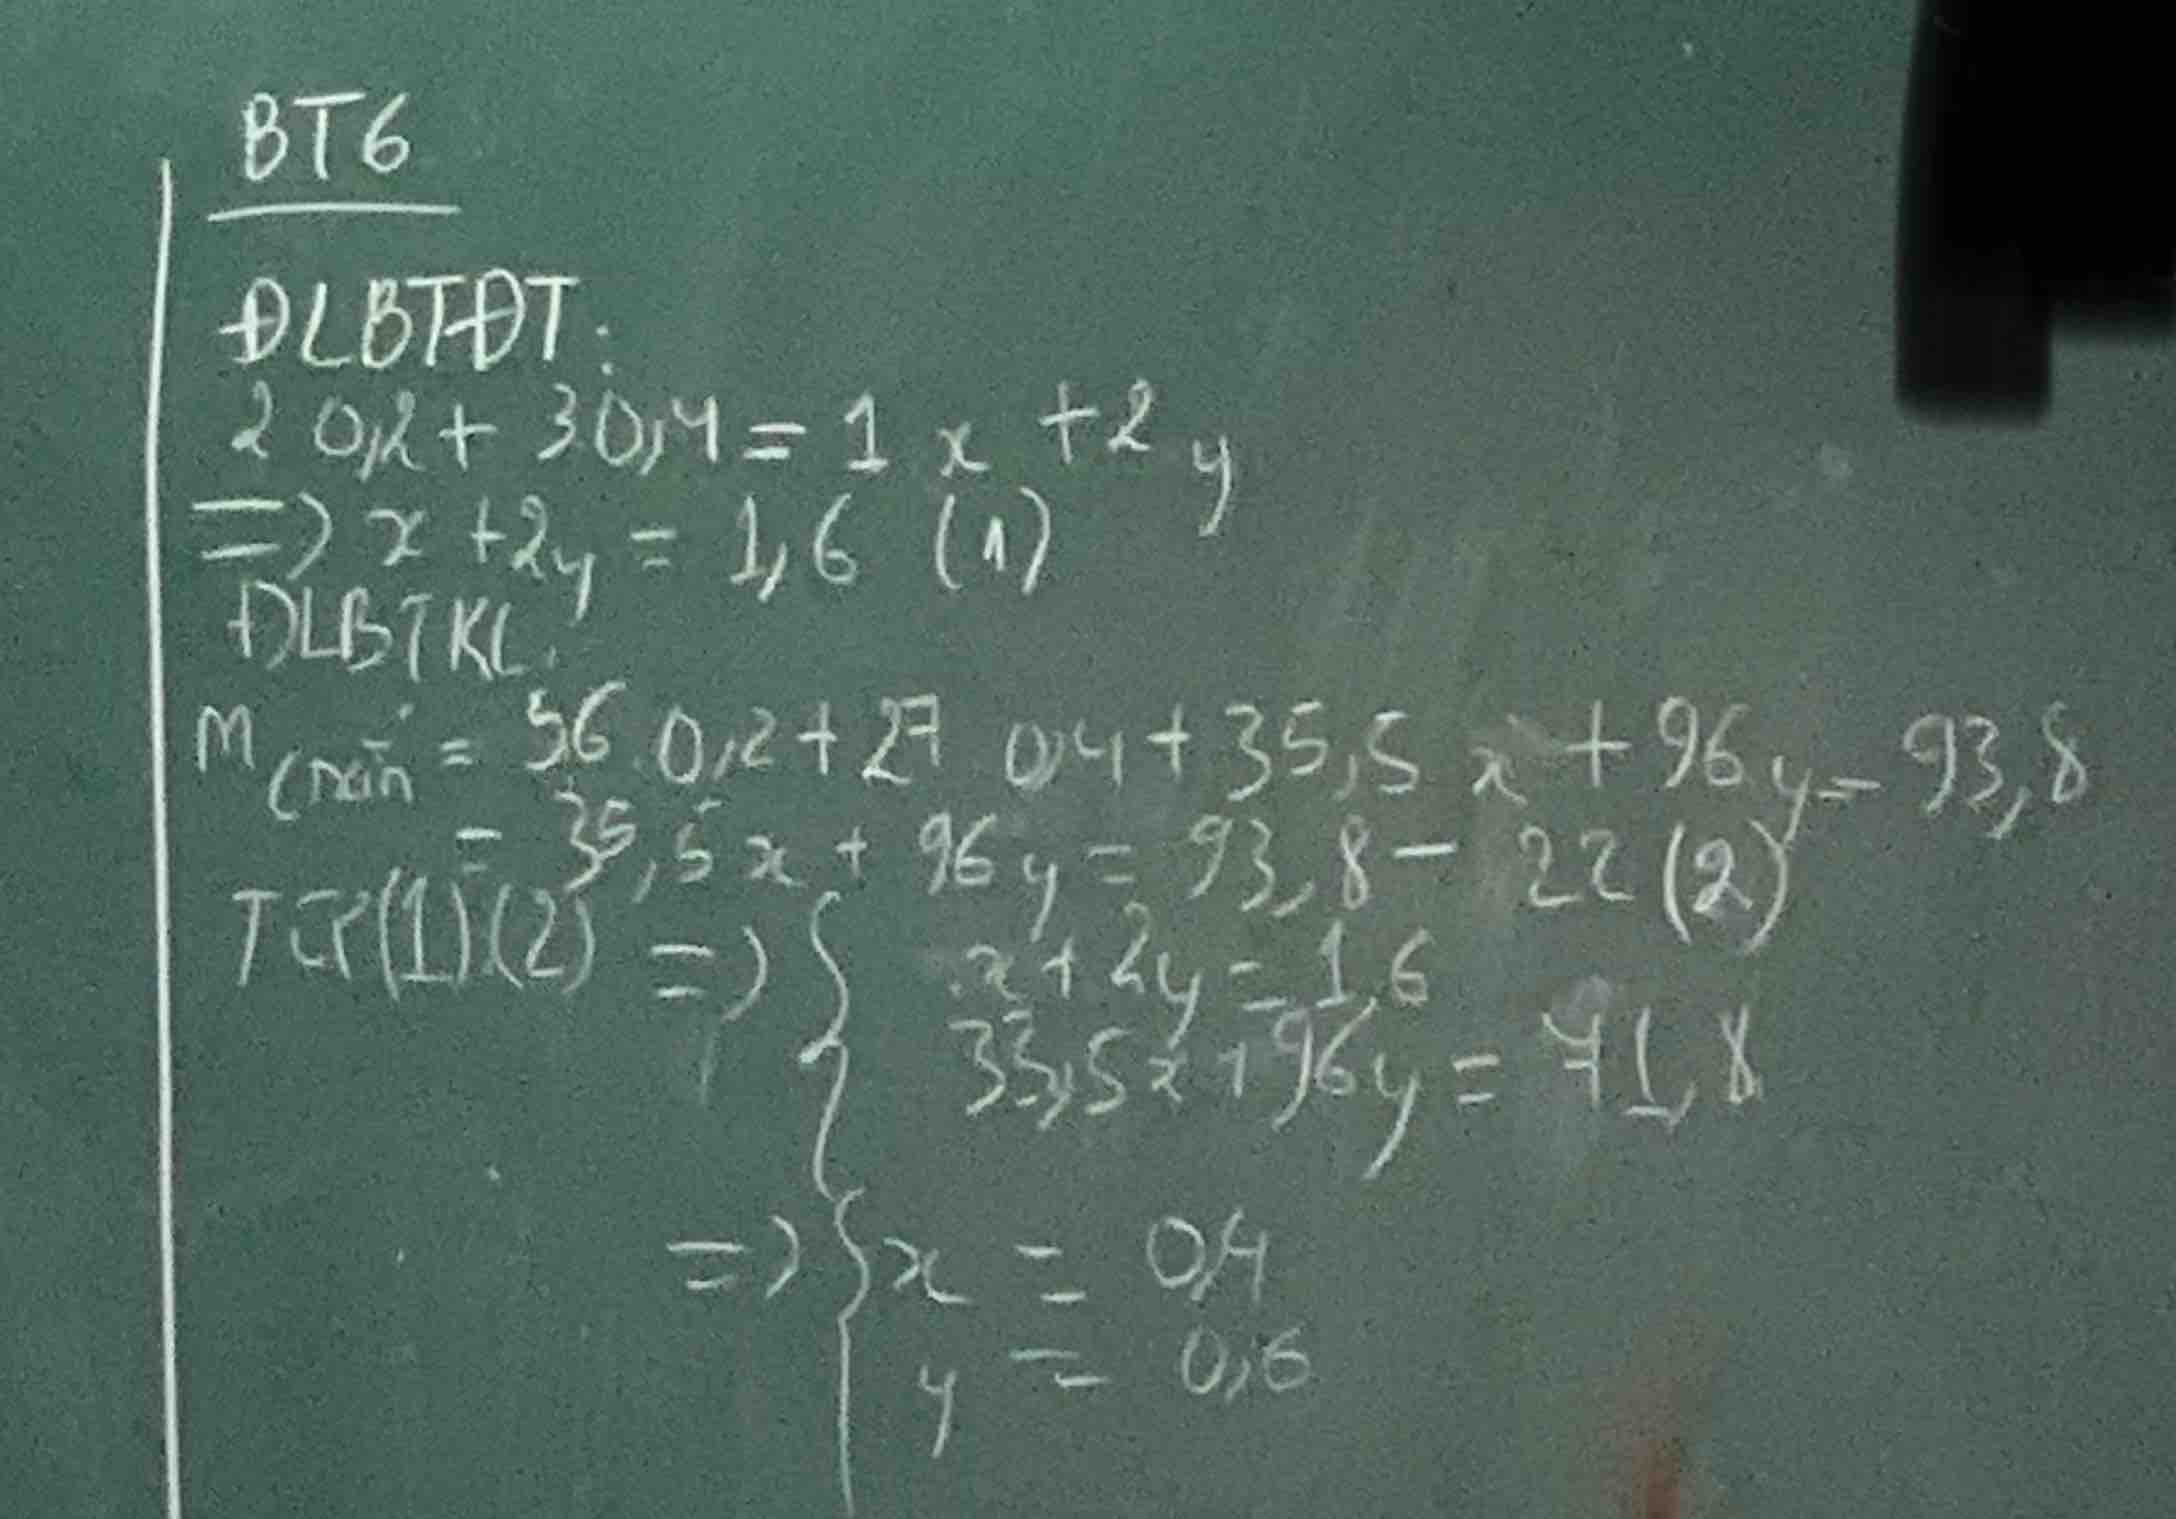 BT6
ĐLBTĐT:
2 0,2 + 3 0,4 = 1 x + 2 y
=> x + 2y = 1,6 (1)
ĐLBTKL:
m = 56 0,2 + 27 0,4 + 35,5 x + 96 y = 93,8
= 35,5 x + 96 y = 93,8 - 22 (2)
Từ (1) (2) => { x + 2y = 1,6
35,5x + 96y = 71,8
=> { x = 0,4
y = 0,6